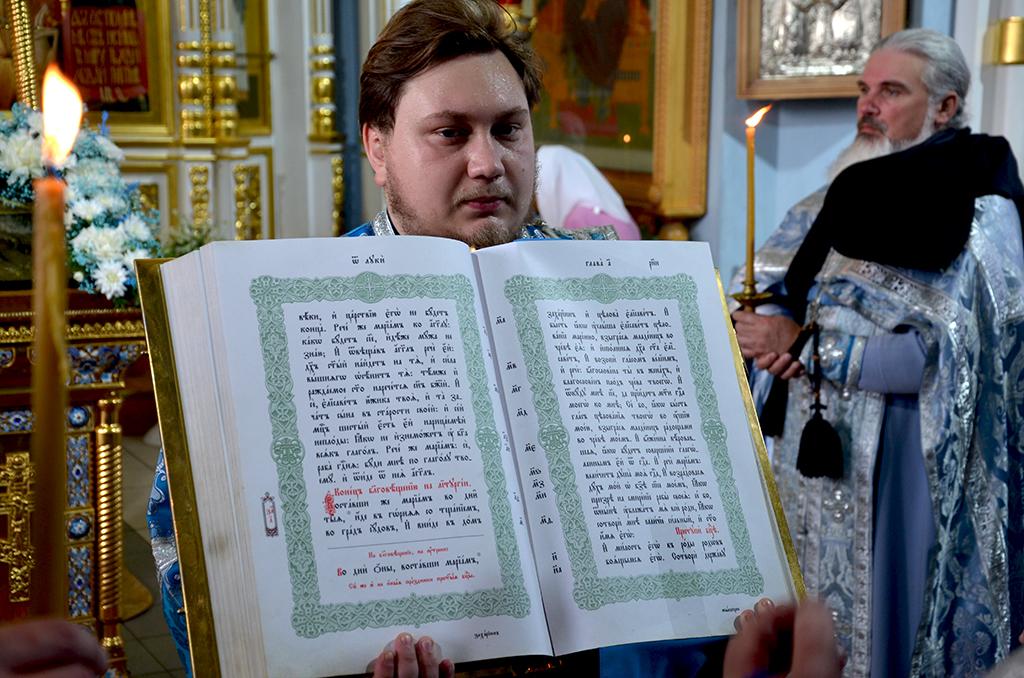 ѿ лꙋкѝ
вѣки, и҆ царствїю є҆гѡ̀ не бꙋдетъ
конца̀. Рече́ же марїа́мъ ко а҆́гг҃лꙋ:
ка́кѡ бꙋ́детъ сїѐ, и҆дѣ́же мꙋ́жа не
зна́ю; И҆ ѿвѣща́въ а҆́гг҃лъ речѐ є҆́й:
дх҃ъ ст҃ы́й на́йдетъ на тѧ̀, и҆ си́ла
вы́шнѧгѡ ѡ҆сѣни́тъ тѧ̀: тѣ́мже и҆
ражда́емое ст҃о нарече́тсѧ сн҃ъ бж҃їй. И҆
сѐ, є҆лїсаве́тъ ю҆́жика твоѧ̀, и҆ та̀ за-
ча́тъ сы́на въ ста́рости свое́й: и҆ се́й
мц҃ъ шесты́й є҆́сть є҆́й нарица́емѣй
непло́ды: Ꙗ҆́кѡ не и҆знемо́жетъ ᲂу҆ бг҃а
всѧ́къ глаго́лъ. Рече́ же марїа́мъ: сѐ,
раба̀ гдⷭ҇нѧ: бꙋ́ди мнѣ̀ по глаго́лꙋ тво-
емꙋ̀. и҆ ѿи́де ѿ неѧ̀ а҆́гг҃лъ.
Коне́цъ бл҃говѣ́щенїю на лїтꙋргі́и.
Воста́вши же марїа́мъ во дни̑
ты̑ѧ, и҆́де въ гѡ́рнѧѧ со тща́нїемъ,
во гра́дъ і҆ꙋ́довъ, И҆ вни́де въ до́мъ
На бл҃говѣ́щенїе, на ᲂу҆́трени
Во дни̑ ѡ҆́ны, воста́вши марїа́мъ,
Сїѐ же и҆ на и҆ны̑ѧ пра́здники прест҃ы́ѧ бц҃ы.
заха́рїинъ
глава̀ а҃
заха́рїинъ и҆ цѣлова̀ є҆лїсаве́тъ. И҆
бы́сть ꙗ҆́кѡ ᲂу҆слы́ша є҆лїсаве́тъ цѣло-
ва́нїе марі́ино, взыгра́сѧ младе́нецъ во
чре́вѣ є҆ѧ̀: и҆ и҆спо́лнисѧ дх҃а ст҃а є҆лї-
саве́тъ, И҆ возопѝ гла́сомъ ве́лїимъ,
и҆ речѐ: бл҃гослове́на ты̀ въ жена́хъ, и҆
бл҃гослове́нъ пло́дъ чре́ва твоегѡ̀. И҆
ѿкꙋ́дꙋ мнѣ̀ сїѐ, да прїи́детъ мт҃и гдⷭ҇а
моегѡ̀ ко мнѣ̀; Се́ бо, ꙗ҆́кѡ бы́сть
гла́съ цѣлова́нїѧ твоегѡ̀ во ᲂу҆́шїю
мое́ю, взыгра́сѧ младе́нецъ ра́дощами
во чре́вѣ мое́мъ. И҆ бл҃же́нна вѣ́ровав-
шаѧ, ꙗ҆́кѡ бꙋ́детъ соверше́нїе глаго́-
ланнымъ є҆́й ѿ гдⷭ҇а. И҆ речѐ марїа́мъ:
вели́читъ дꙋша̀ моѧ̀ гдⷭ҇а, И҆ возра́довасѧ
дꙋ́хъ мо́й ѡ҆ бз҃ѣ сп҃сѣ мое́мъ: Ꙗ҆́кѡ
призрѣ̀ на смире́нїе рабы̀ своеѧ̀: се́ бо,
ѿны́нѣ ᲂу҆бл҃жа́тъ мѧ̀ всѝ ро́ди, Ꙗ҆́кѡ
сотворѝ мнѣ̀ вели́чїе си́льный, и҆ ст҃о
и҆́мѧ є҆гѡ̀. Престꙋпѝ бц҃ѣ.
И҆ ми́лость є҆гѡ̀ въ ро́ды родѡ́въ
боѧ́щымсѧ є҆гѡ̀. Сотворѝ держа́вꙋ
мы́шцею